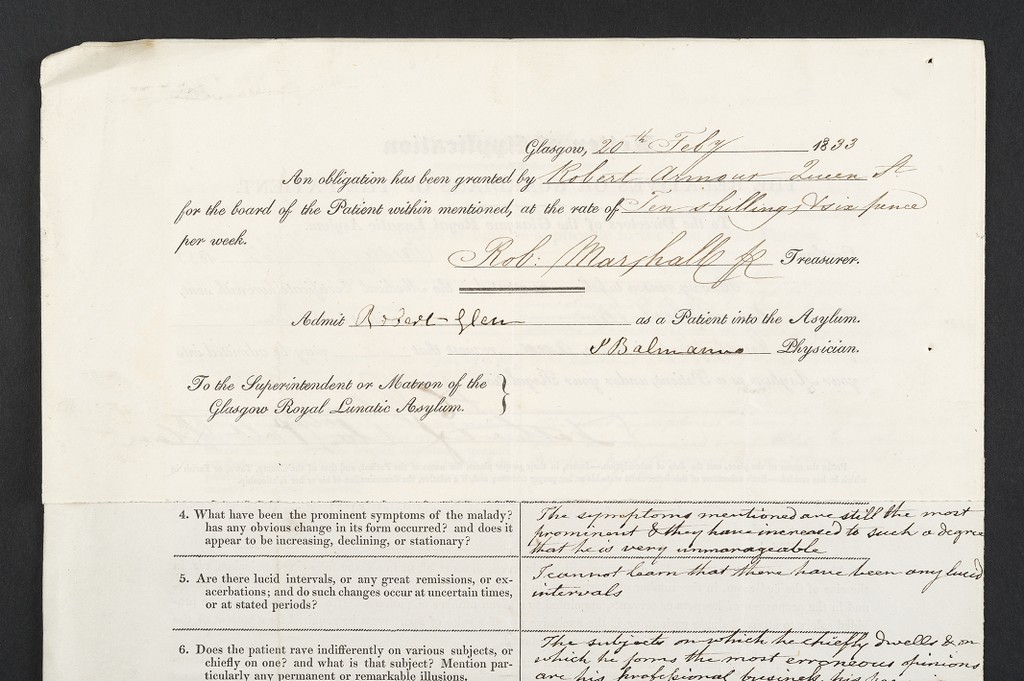 Glasgow, 20th Feby 1833
An obligation has been granted by Robert Armour Queen St
for the board of the Patient within mentioned, at the rate of Ten shillings & six pence
per week.
Rob: Marshall Jr Treasurer.
Admit Robert Glen as a Patient into the Asylum.
J Balmanno Physician.
To the Superintendent or Matron of the
Glasgow Royal Lunatic Asylum.
4. What have been the prominent symptoms of the malady?
has any obvious change in its form occurred? and does it
appear to be increasing, declining, or stationary?
The symptoms mentioned are still the most
prominent & they have increased to such a degree
that he is very unmanageable
5. Are there lucid intervals, or any great remissions, or ex-
acerbations; and do such changes occur at uncertain times,
or at stated periods?
I cannot learn that there have been any lucid
intervals
6. Does the patient rave indifferently on various subjects, or
chiefly on one? and what is that subject? Mention par-
ticularly any permanent or remarkable illusions.
The subjects on which he chiefly dwells & on
which he forms the most erroneous opinions
are his professional business, his